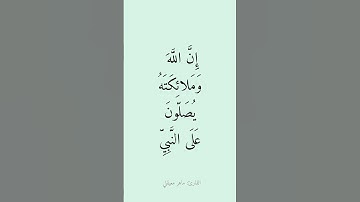 إِنَّ اللَّهَ
وَمَلائِكَتَهُ
يُصَلّونَ
عَلَى النَّبِيِّ
القارئ: ماهر معيقلي